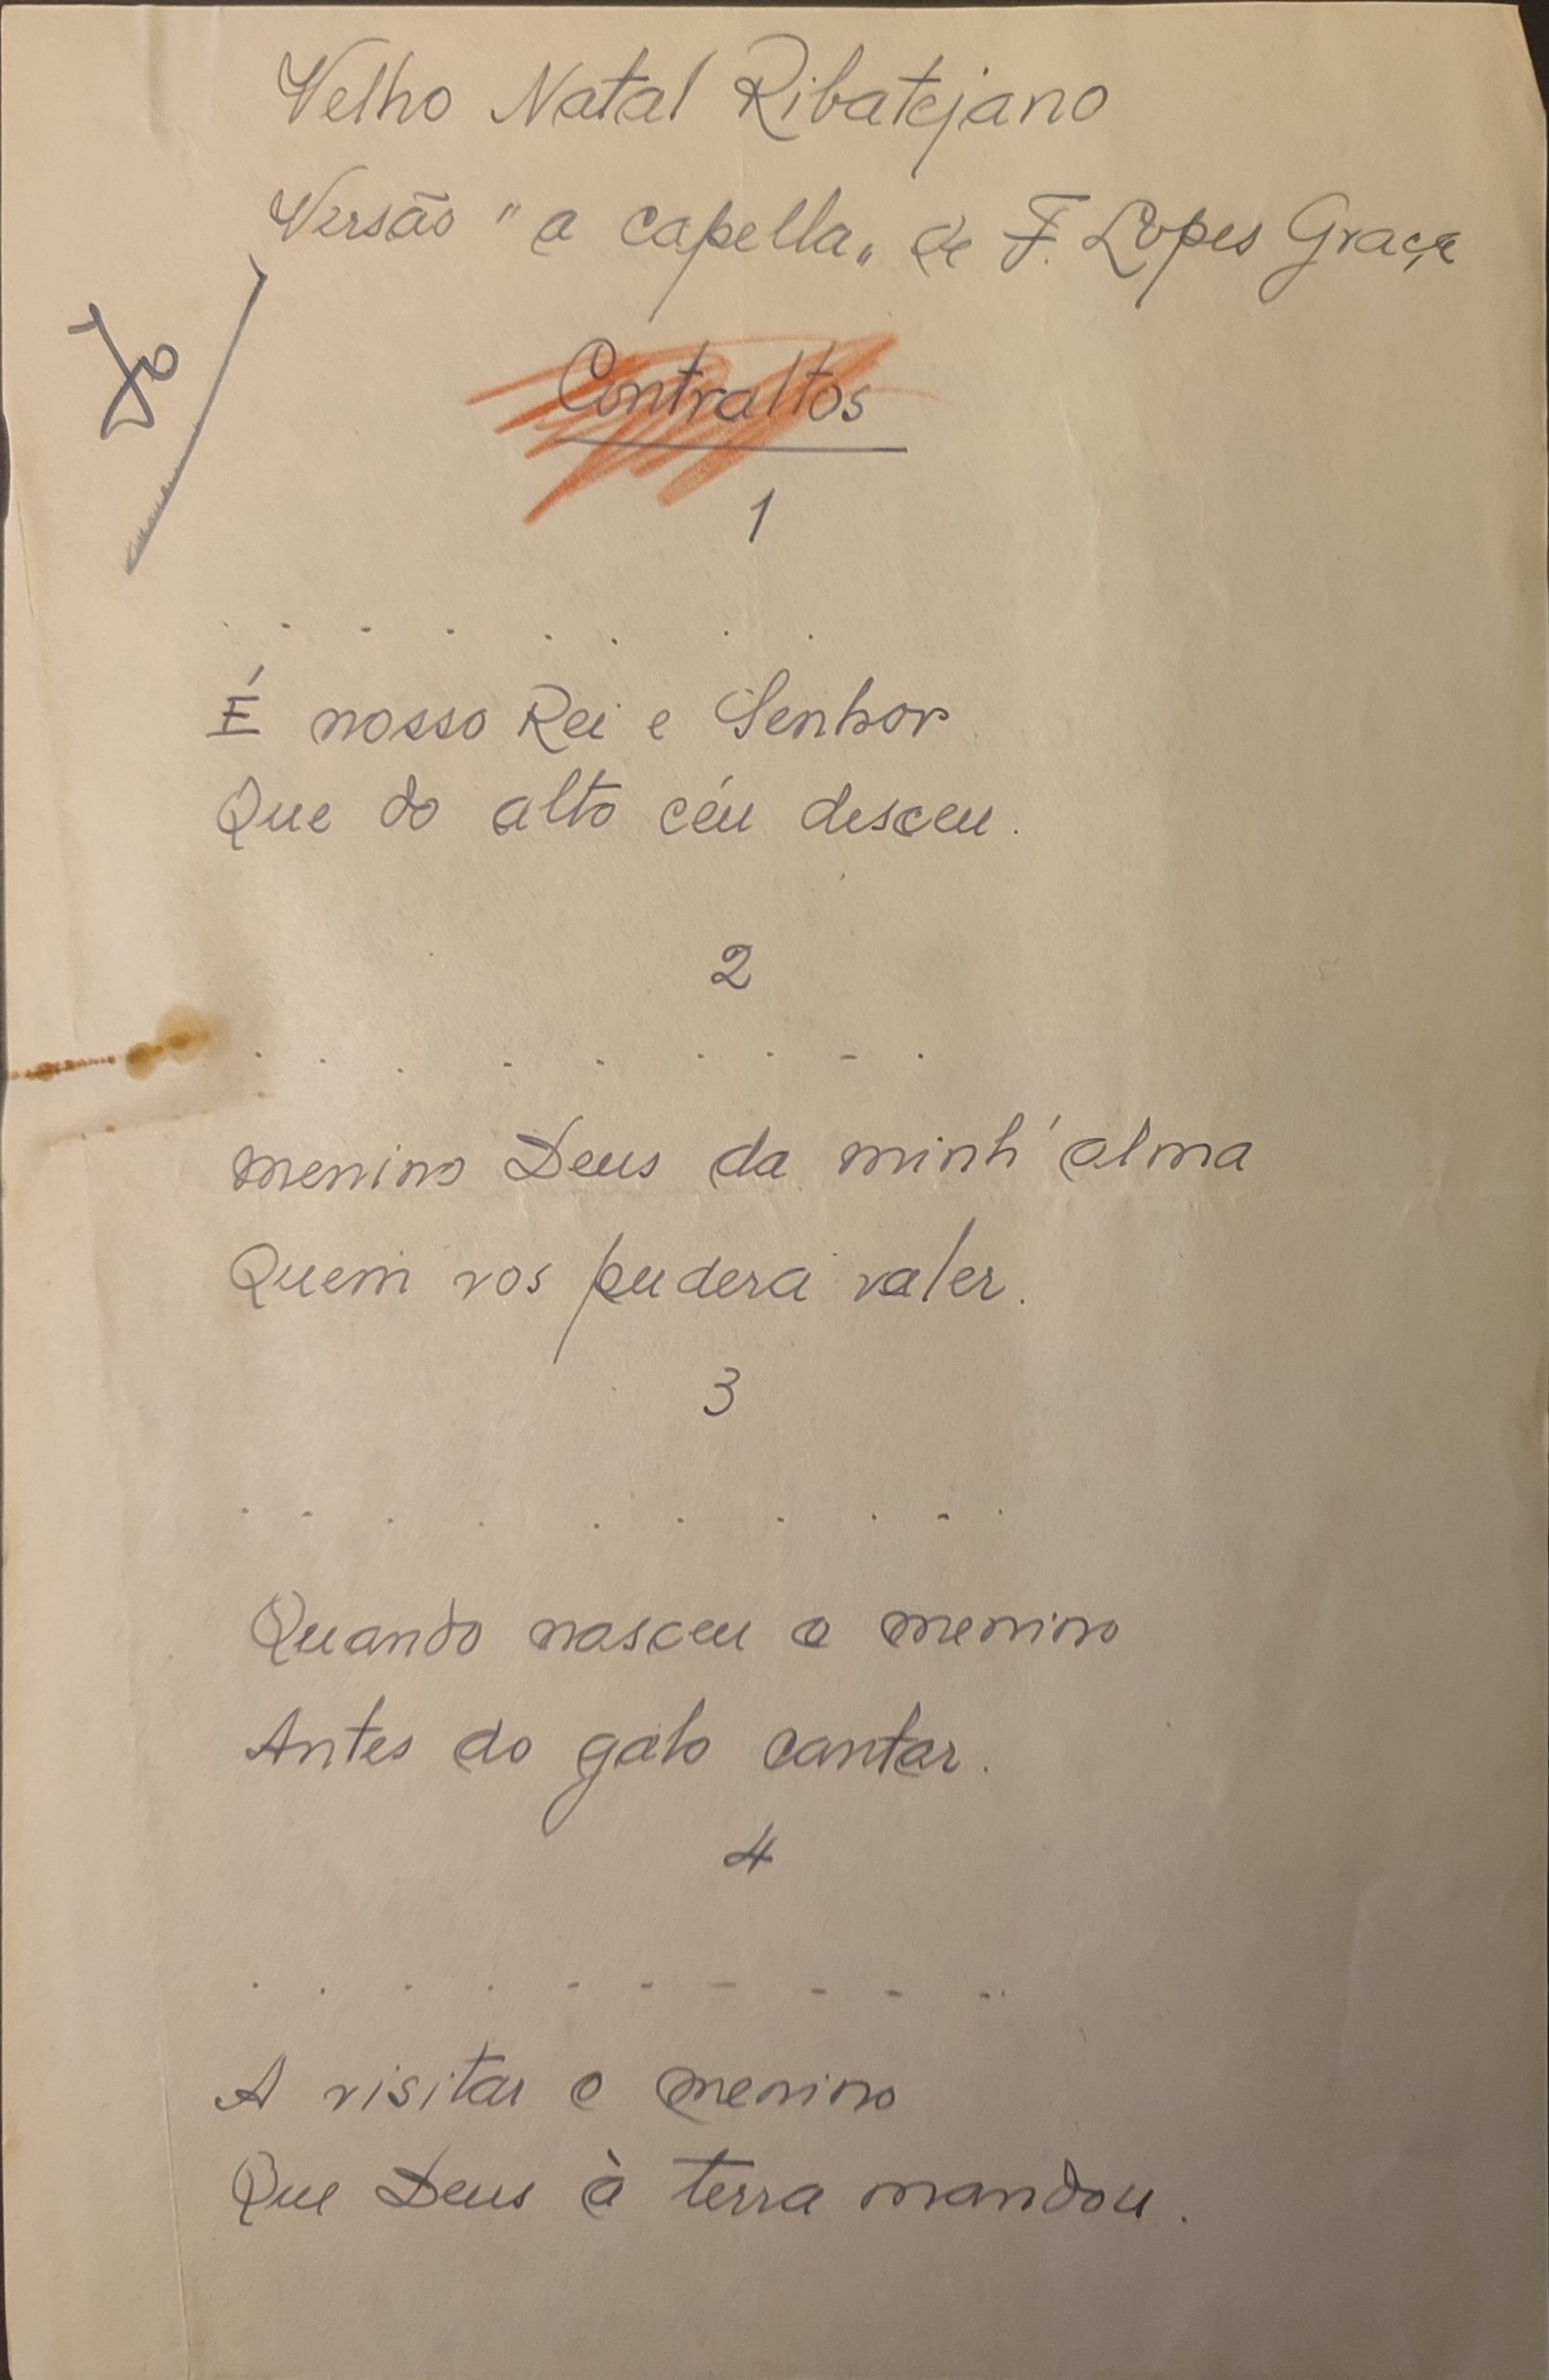 Velho Natal Ribatejano
Versão "a capella" de F. Lopes Graça
Contraltos
1
. . . . . . . .
É nosso Rei e Senhor
Que do alto céu desceu.
2
. . . . . . . . .
menino Deus da minh'alma
Quem vos pudera valer.
3
. . . . . . . . . .
Quando nasceu o menino
Antes do galo cantar.
4
. . . . . . . . . .
A visitar o menino
Que Deus à terra mandou.